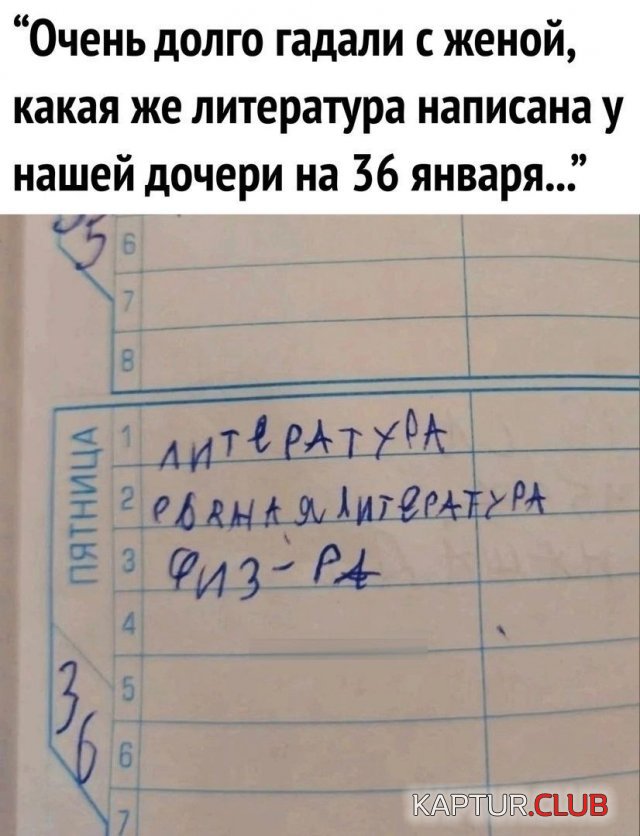 “Очень долго гадали с женой,
какая же литература написана у
нашей дочери на 36 января...”
35
6
7
8
ПЯТНИЦА
1 ЛИТЕРАТУРА
2 РВАНАЯ ЛИТЕРАТУРА
3 ФИЗ-РА
4
36
5
6
7
KAPTUR.CLUB